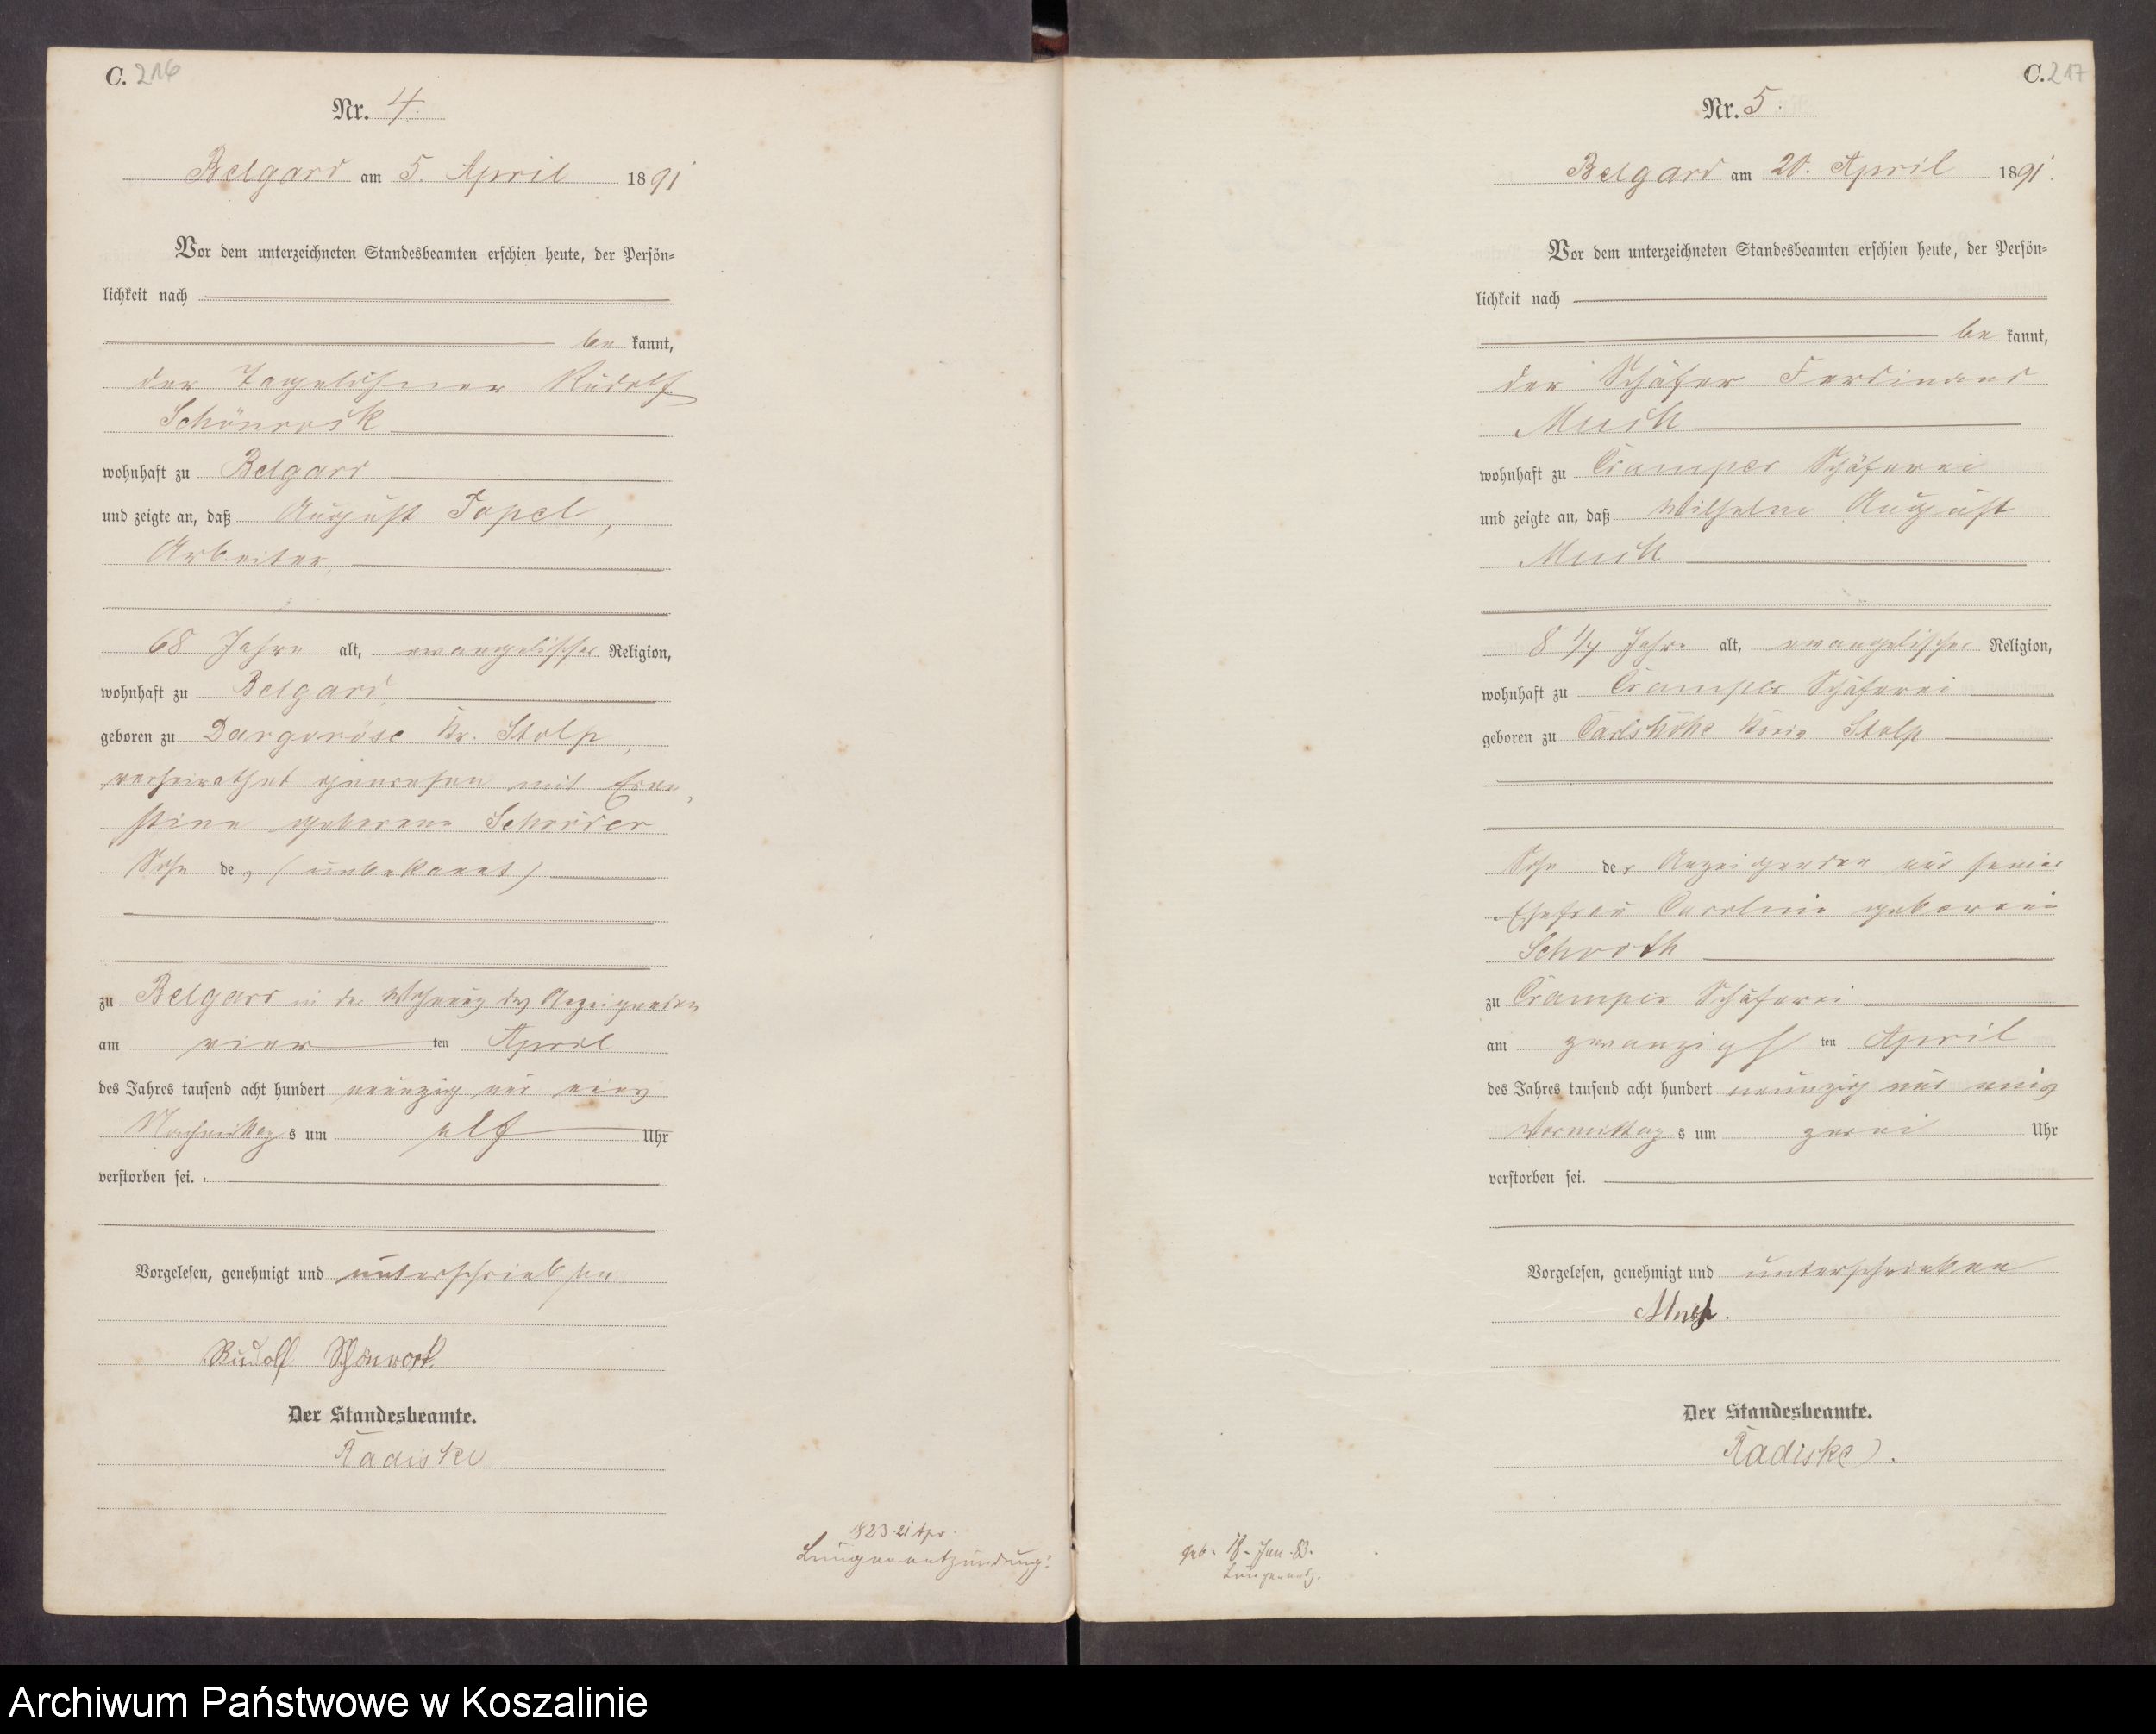 C. 216
Nr. 4.
Belgard am 5. April 1891
Vor dem unterzeichneten Standesbeamten erschien heute, der Persön-
lichkeit nach
be kannt,
der Tagelöhner Rudolf
Schönrock
wohnhaft zu Belgard
und zeigte an, daß August Papel,
Arbeiter,
68 Jahre alt, evangelischer Religion,
wohnhaft zu Belgard,
geboren zu Dargeröse Kr. Stolp,
verheirathet gewesen mit Erne-
stine geborene Schröder
Sohn des (unbekannt)
zu Belgard in der Wohnung des Anzeigenden
am vier ten April
des Jahres tausend acht hundert neunzig und eins
Nachmittag s um elf Uhr
verstorben sei.
Vorgelesen, genehmigt und unterschrieben
Rudolf Schönrock.
Der Standesbeamte.
Radiske
1823 21 Apr.
Lungenentzündung.
C. 217
Nr. 5.
Belgard am 20. April 1891.
Vor dem unterzeichneten Standesbeamten erschien heute, der Persön-
lichkeit nach
be kannt,
der Schäfer Ferdinand
Much
wohnhaft zu Cramper Schäferei
und zeigte an, daß Wilhelm August
Much
8 1/4 Jahre alt, evangelischer Religion,
wohnhaft zu Cramper Schäferei
geboren zu Carlshöhe Kreis Stolp
Sohn des Anzeigenden und seiner
Ehefrau Caroline geborene
Schroth
zu Cramper Schäferei
am zwanzigs ten April
des Jahres tausend acht hundert neunzig und eins
Vormittag s um zwei Uhr
verstorben sei.
Vorgelesen, genehmigt und unterschrieben
Much.
Der Standesbeamte.
Radiske.
geb. 18. Jan. 83.
Lungenentz.
Archiwum Państwowe w Koszalinie